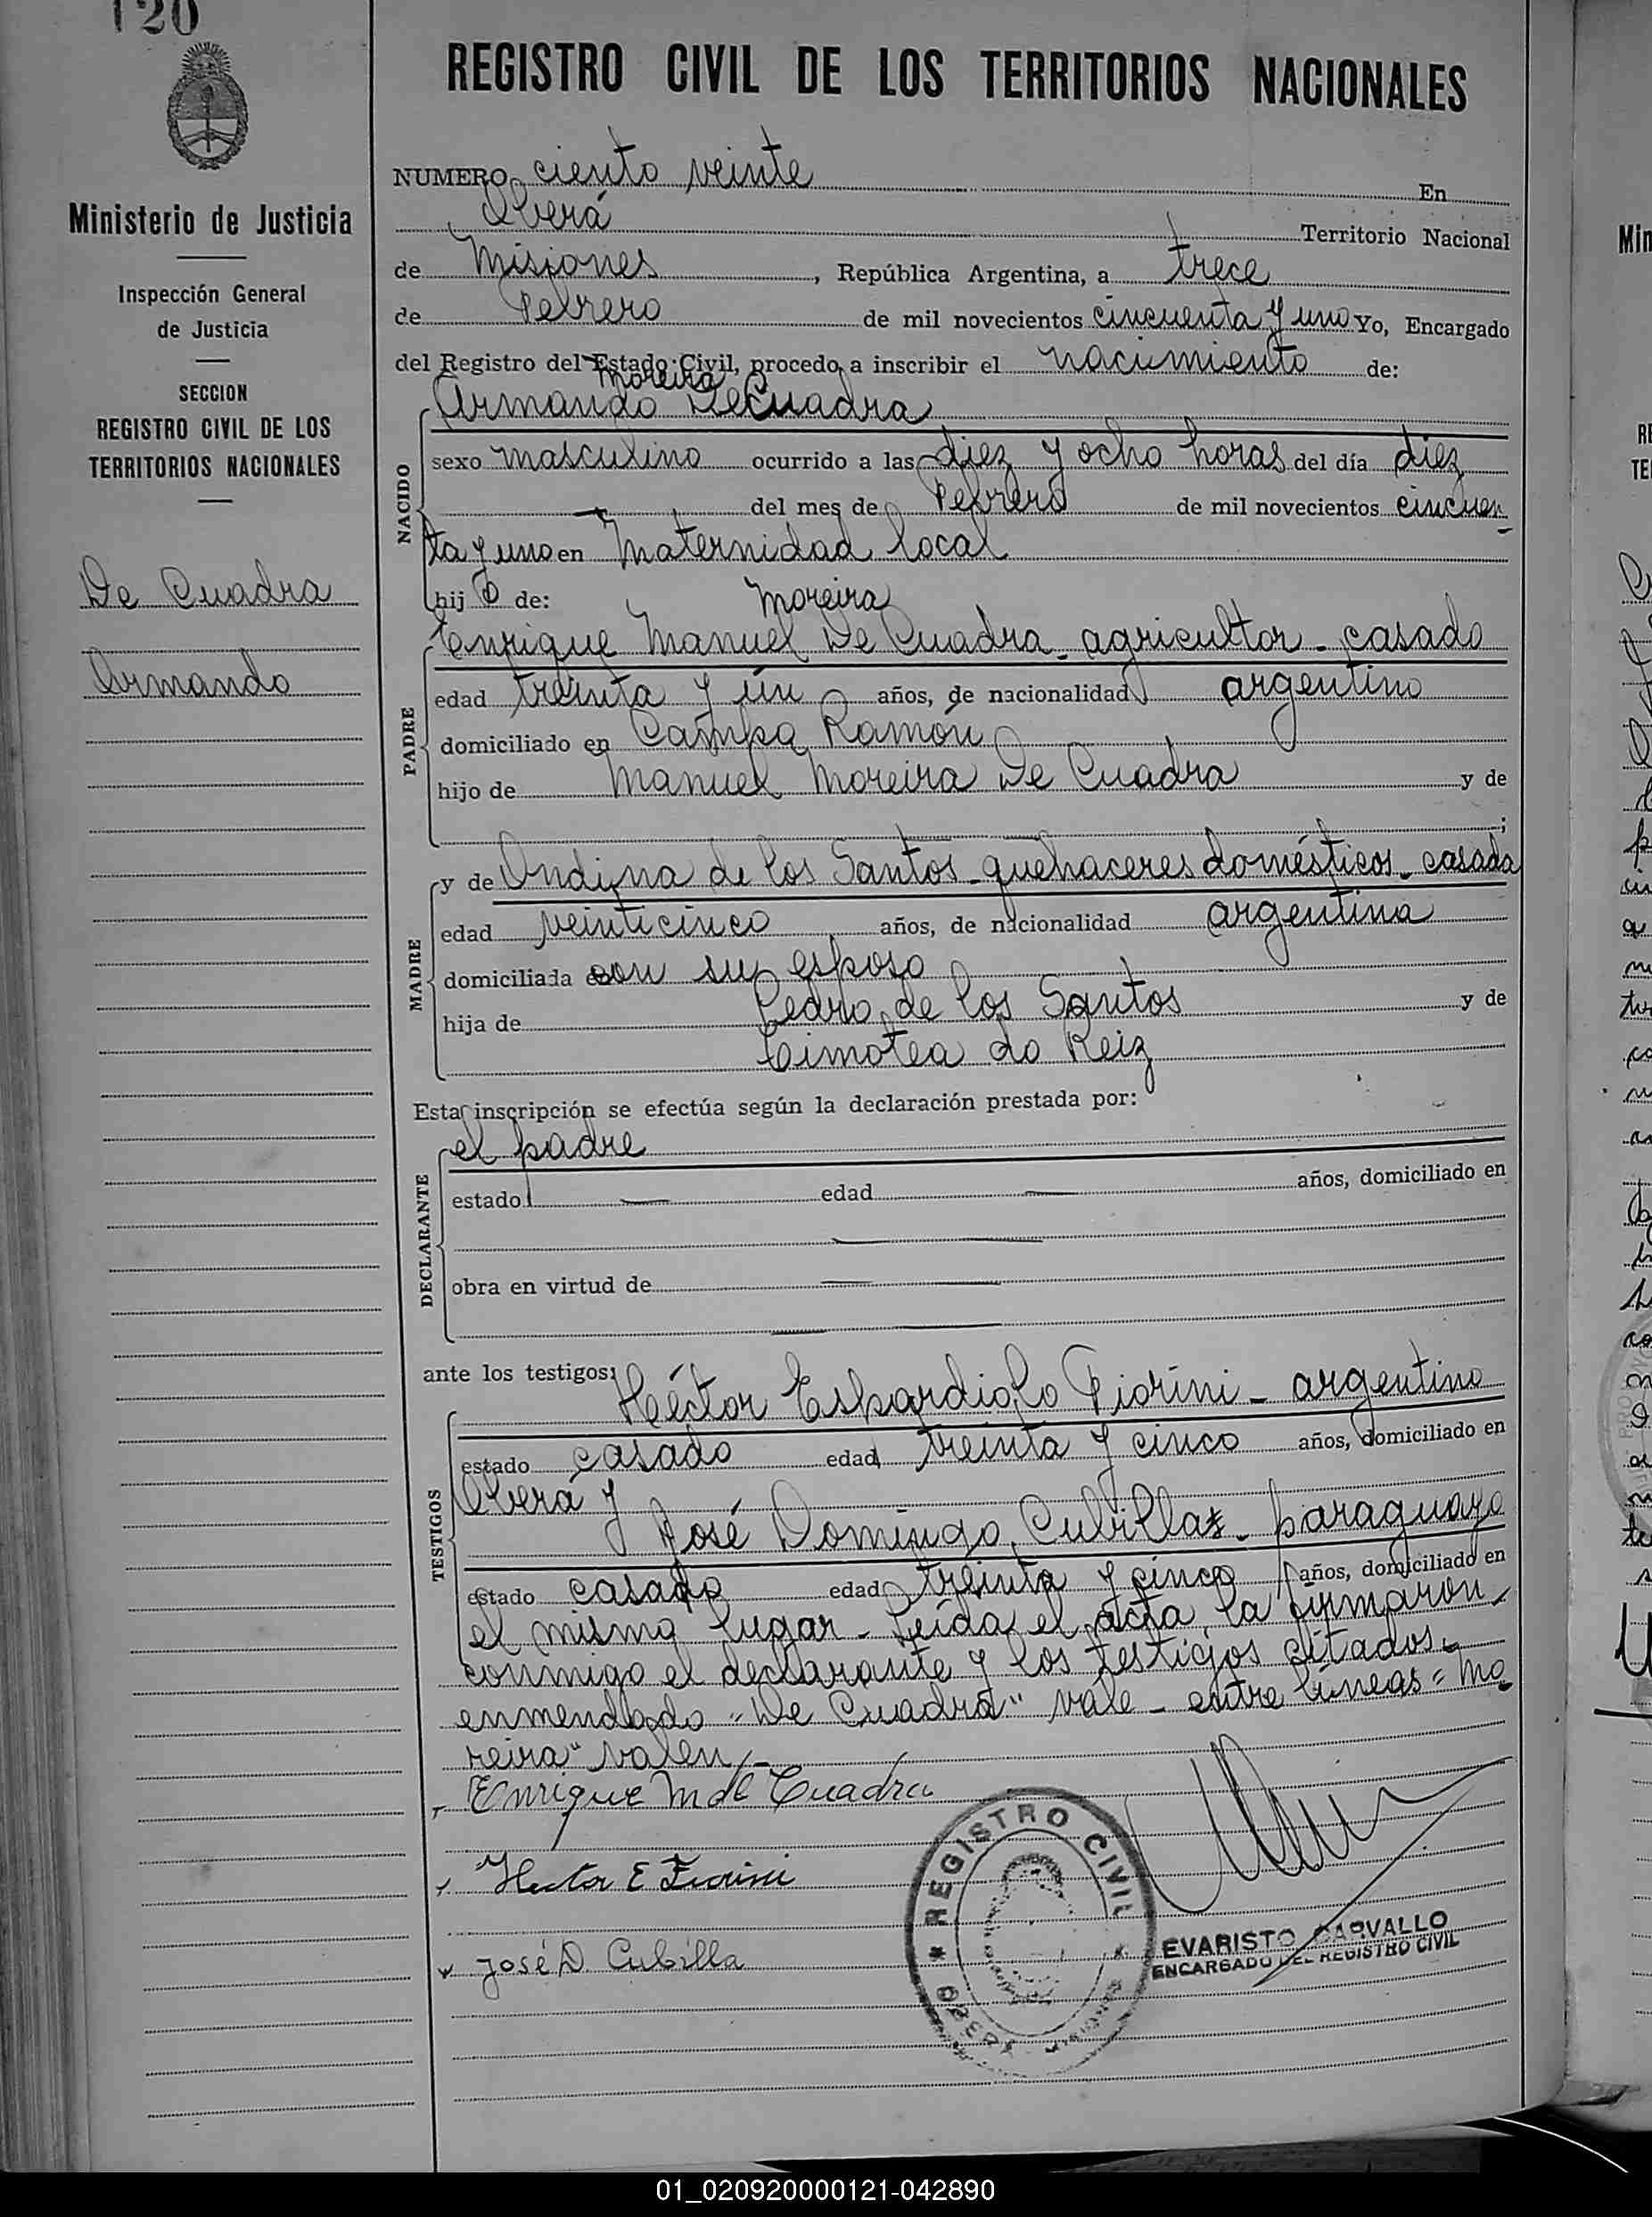 120
REGISTRO CIVIL DE LOS TERRITORIOS NACIONALES
Ministerio de Justicia
Inspección General
de Justicia
SECCION
REGISTRO CIVIL DE LOS
TERRITORIOS NACIONALES
De Cuadra
Armando
NUMERO ciento veinte En
Oberá Territorio Nacional
de Misiones, República Argentina, a trece
de Febrero de mil novecientos cincuenta y uno Yo, Encargado
del Registro del Estado Civil, procedo a inscribir el nacimiento de:
Moreira
Armando De Cuadra
NACIDO
sexo masculino ocurrido a las diez y ocho horas del día diez
del mes de Febrero de mil novecientos cincuen
ta y uno en Maternidad local
hijo de:
Moreira
Enrique Manuel De Cuadra - agricultor - casado
PADRE
edad treinta y un años, de nacionalidad argentino
domiciliado en Campo Ramón
hijo de Manuel Moreira De Cuadra y de
;
y de Ondina de los Santos - quehaceres domésticos - casada
MADRE
edad veinticinco años, de nacionalidad argentina
domiciliada con su esposo
hija de Pedro de los Santos y de
Timotea do Reiz
Esta inscripción se efectúa según la declaración prestada por:
el padre
DECLARANTE
estado — edad — años, domiciliado en
obra en virtud de
ante los testigos:
Héctor Espardiolo Fiorini - argentino
TESTIGOS
estado casado edad treinta y cinco años, domiciliado en
Oberá y
José Domingo Cubilla - paraguayo
estado casado edad treinta y cinco años, domiciliado en
el mismo lugar - Leída el acta, la firmaron
conmigo el declarante y los testigos citados -
enmendado "De Cuadra" vale - entre líneas "Mo
reira" valen/-
Enrique M de Cuadra
Hector E Fiorini
José D. Cubilla
REGISTRO CIVIL
OBERA
EVARISTO CARVALLO
ENCARGADO DEL REGISTRO CIVIL
01_020920000121-042890